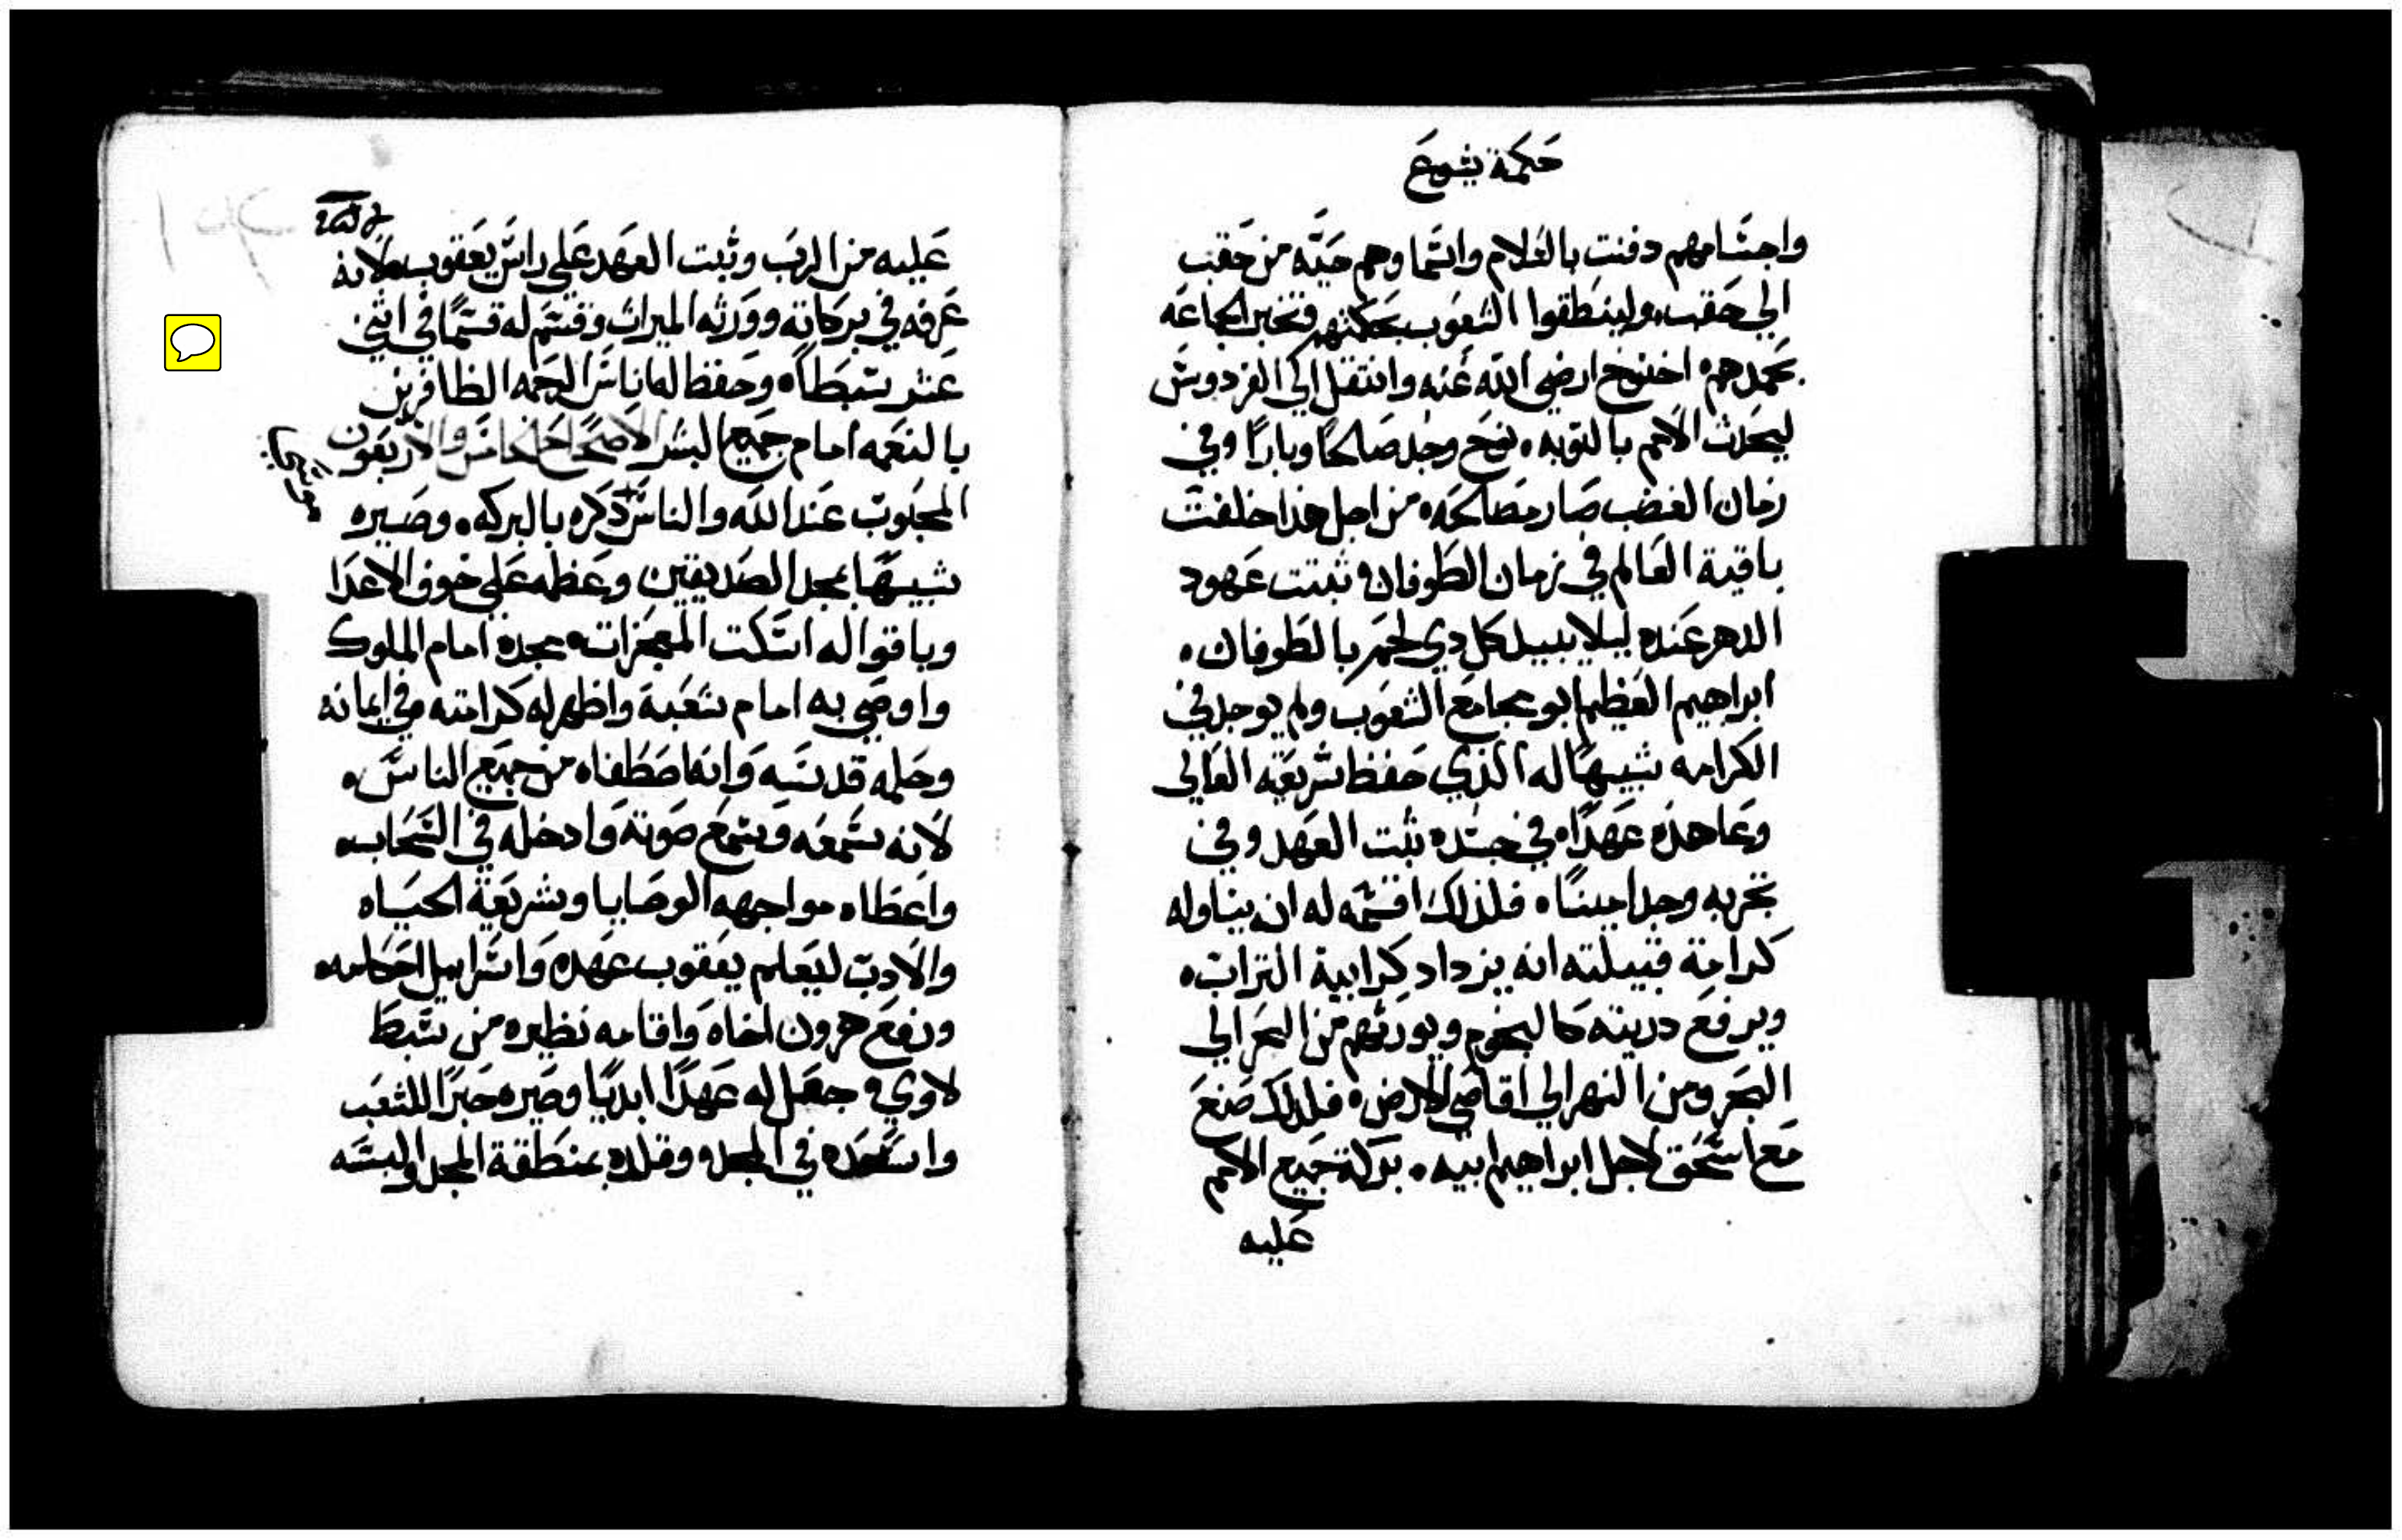 حكمة يشوع
واجسامهم دفنت بالسلام واسما وهم حيه من حقب
الي حقب ولينطقوا الشعوب بحكمتهم وتخبر الجماعه
بحمدهم اخنوخ ارضي الله عنه وانتقل الي الفردوس
ليحدث الامم بالتوبه نوح وجد صالحا وبارا وفي
زمان الغضب صار مصالحه من اجل هذا خلفت
باقية العالم في زمان الطوفان ثبتت عهود
الدهر عنده ليلا يبيد كل دي لحم بالطوفان
ابراهيم العظيم ابو مجامع الشعوب ولم يوجد في
الكرامه شبيها له الذي حفظ شريعة العالي
وعاهده عهدا في جسده ثبت العهد وفي
تجربه وجد امينا فلذلك اقسم له ان يناوله
كرامة قبيلته انه يزداد كرابية التراب
ويرفع دريته كالنجوم ويورثهم من البحر الي
البحر ومن النهر الي اقاصي الارض فلذلك صنع
مع اسحق لاجل ابراهيم ابيه بركة جميع الامم
عليه
عليه من الرب وثبت العهد علي راس يعقوب لانه
عرفه في بركاته وورثه الميراث وقسم له قسما في اثني
عشر سبطا وحفظ له اناس الرحمه الظافرين
بالنعمه امام جميع البشر الاصحاح الخامس والاربعون
موسي
المحبوب عند الله والناس ذكره بالبركه وصيره
شبيها بمجد الصديقين وعظمه علي خوف الاعدا
وباقواله اسكت المعجزات مجده امام الملوك
واوصي به امام شعبه واظهر له كرامته وفي ايمانه
وحلمه قدسه وانه اصطفاه من جميع الناس
لانه سمعه وسمع صوته وادخله في السحاب
واعطاه مواجهه الوصايا وشريعة الحياه
والادب ليعلم يعقوب عهده واسراييل احكامه
ورفع هرون اخاه واقامه نظيره من سبط
لاوي جعل له عهدا ابديا وصيره حبرا للشعب
واسعده في المجد وقلده بمنطقة المجد والبسه